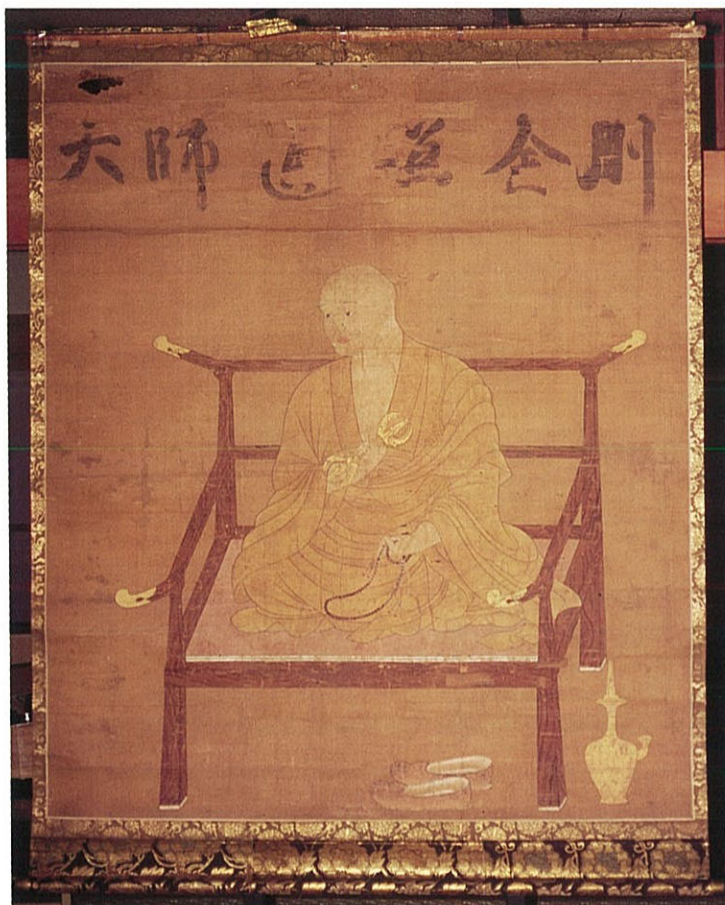 大師遍照金剛